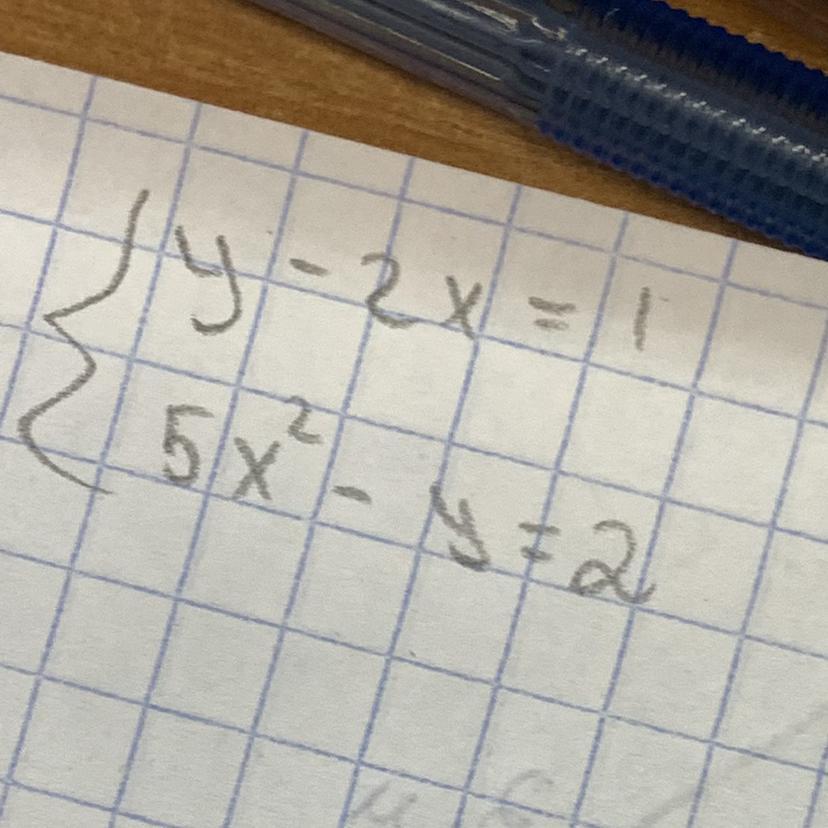 y - 2x = 1
5x² - y = 2